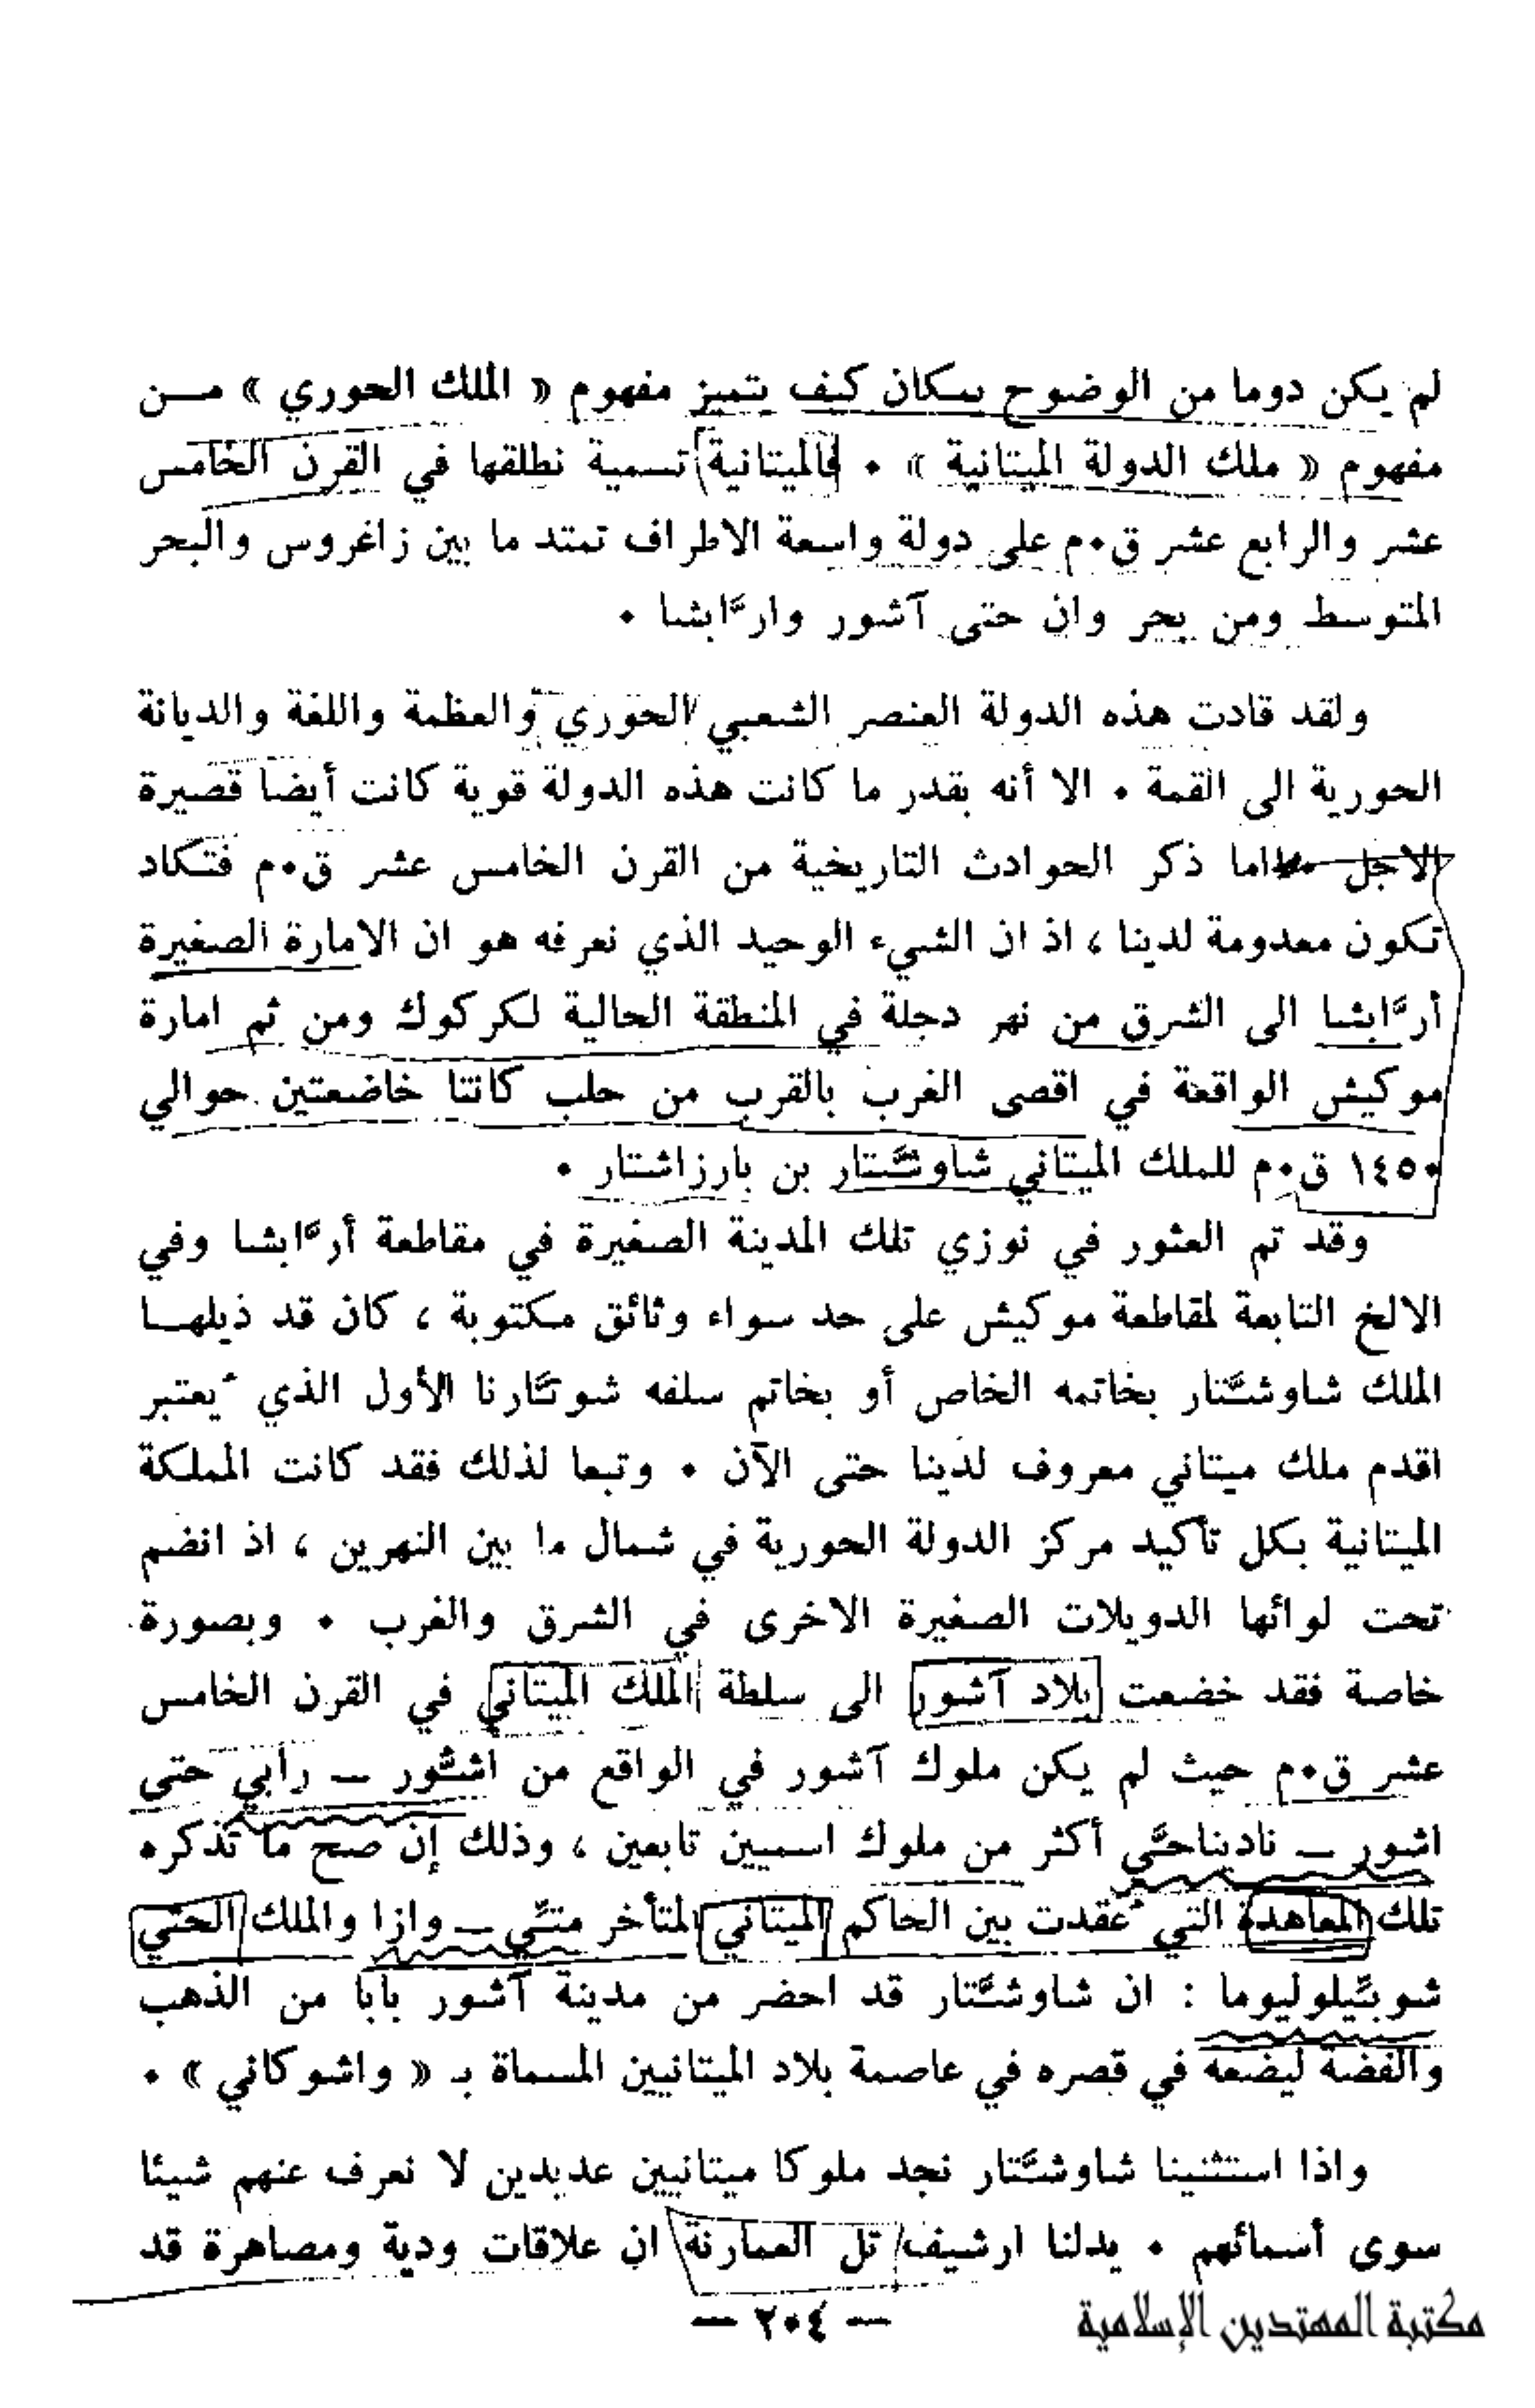 لم يكن دوما من الوضوح بمكان كيف يتميز مفهوم « الملك الحوري » مـن
مفهوم « ملك الدولة الميتانية » ٠ فالميتانية تسمية نطلقها في القرن الخامس
عشر والرابع عشر ق٠م على دولة واسعة الاطراف تمتد ما بين زاغروس والبحر
المتوسط ومن بحر وان حتى آشور وارَّابشا ٠
ولقد قادت هذه الدولة العنصر الشعبي الحوري والعظمة واللغة والديانة
الحورية الى القمة ٠ الا أنه بقدر ما كانت هذه الدولة قوية كانت أيضا قصيرة
الاجل اما ذكر الحوادث التاريخية من القرن الخامس عشر ق٠م فتكاد
تكون معدومة لدينا ، اذ ان الشيء الوحيد الذي نعرفه هو ان الامارة الصغيرة
أرَّابشا الى الشرق من نهر دجلة في المنطقة الحالية لكركوك ومن ثم امارة
موكيش الواقعة في اقصى الغرب بالقرب من حلب كانتا خاضعتين حوالي
١٤٥٠ ق٠م للملك الميتاني شاوشتَّار بن بارزاشتار ٠
وقد تم العثور في نوزي تلك المدينة الصغيرة في مقاطعة أرَّابشا وفي
الالخ التابعة لمقاطعة موكيش على حد سواء وثائق مكتوبة ، كان قد ذيلهـا
الملك شاوشتَّار بخاتمه الخاص أو بخاتم سلفه شوتَّارنا الأول الذي يُعتبر
اقدم ملك ميتاني معروف لدينا حتى الآن ٠ وتبعا لذلك فقد كانت المملكة
الميتانية بكل تأكيد مركز الدولة الحورية في شمال ما بين النهرين ، اذ انضم
تحت لوائها الدويلات الصغيرة الاخرى في الشرق والغرب ٠ وبصورة
خاصة فقد خضعت بلاد آشور الى سلطة الملك الميتاني في القرن الخامس
عشر ق٠م حيث لم يكن ملوك آشور في الواقع من اشُّور ــ رابي حتى
اشور ــ ناديناحَّي أكثر من ملوك اسميين تابعين ، وذلك إن صح ما تذكره
تلك المعاهدة التي عُقدت بين الحاكم الميتاني المتأخر متِّي ــ وازا والملك الحثي
شوبِّيلوليوما : ان شاوشتَّار قد احضر من مدينة آشور بابا من الذهب
والفضة ليضعه في قصره في عاصمة بلاد الميتانيين المسماة بـ « واشوكاني » ٠
واذا استثنينا شاوشتَّار نجد ملوكا ميتانيين عديدين لا نعرف عنهم شيئا
سوى أسمائهم ٠ يدلنا ارشيف تل العمارنة ان علاقات ودية ومصاهرة قد
— ٢٠٤ —
مكتبة المهتدين الإسلامية